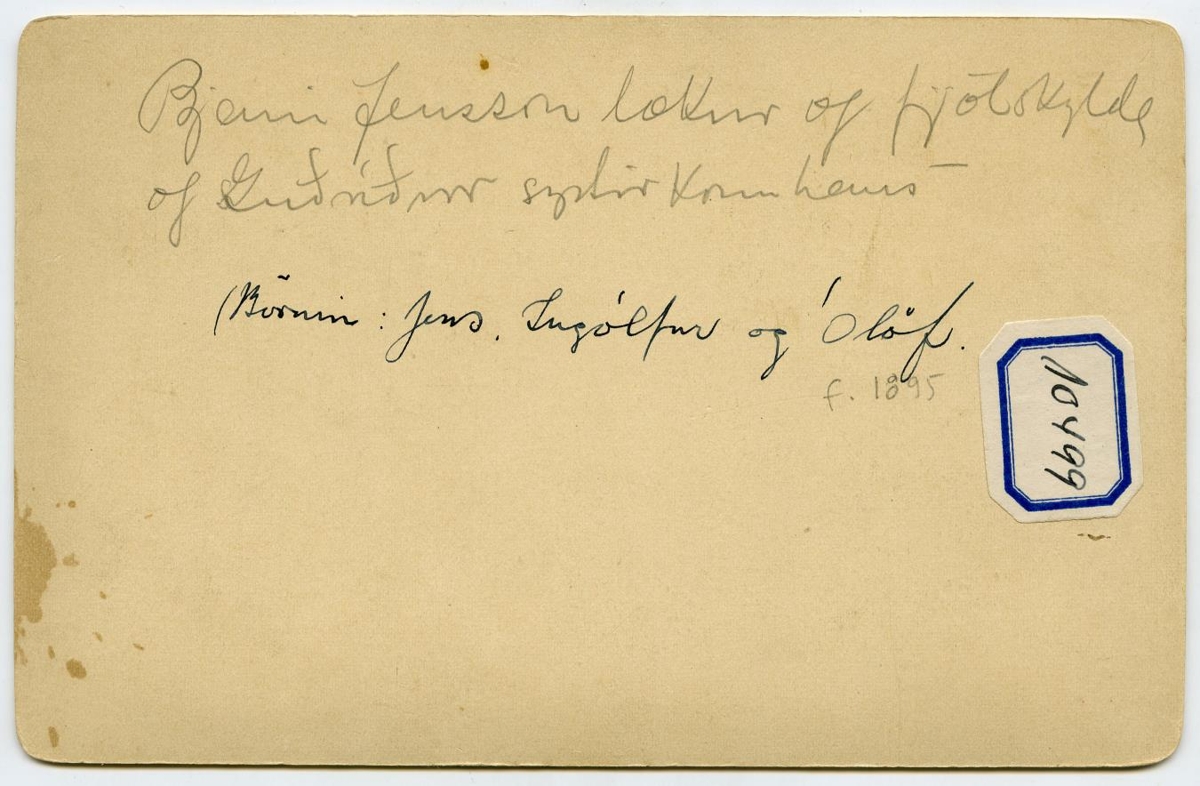 Bjarni Jensson læknir og fjölskylda
og Guðríður systir konu hans
(Börnin: Jens, Ingólfur og Ólöf.
f. 1895
10499